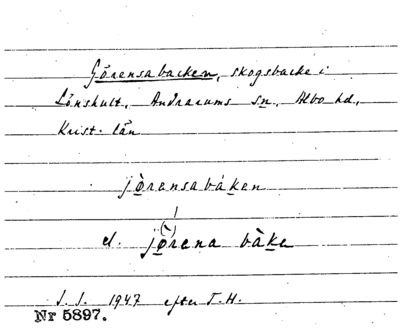 Görensabacken, skogsbacke i
Lönshult, Andrarums sn, Albo hd.,
Krist. län
jörensabáken
el. jörena bàka
1947 efter T. H.
Nr 5897.